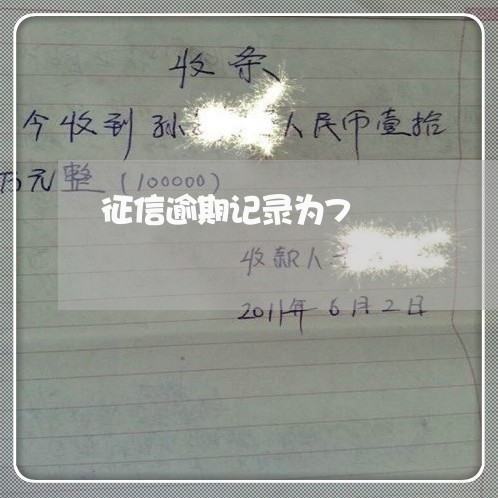 收条
今收到孙 人民币壹拾
万元整（100000）
征信逾期记录为7
收款人
2011年6月2日